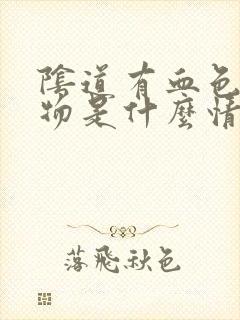 陰道有血色
物是什麼情
落飛秋色